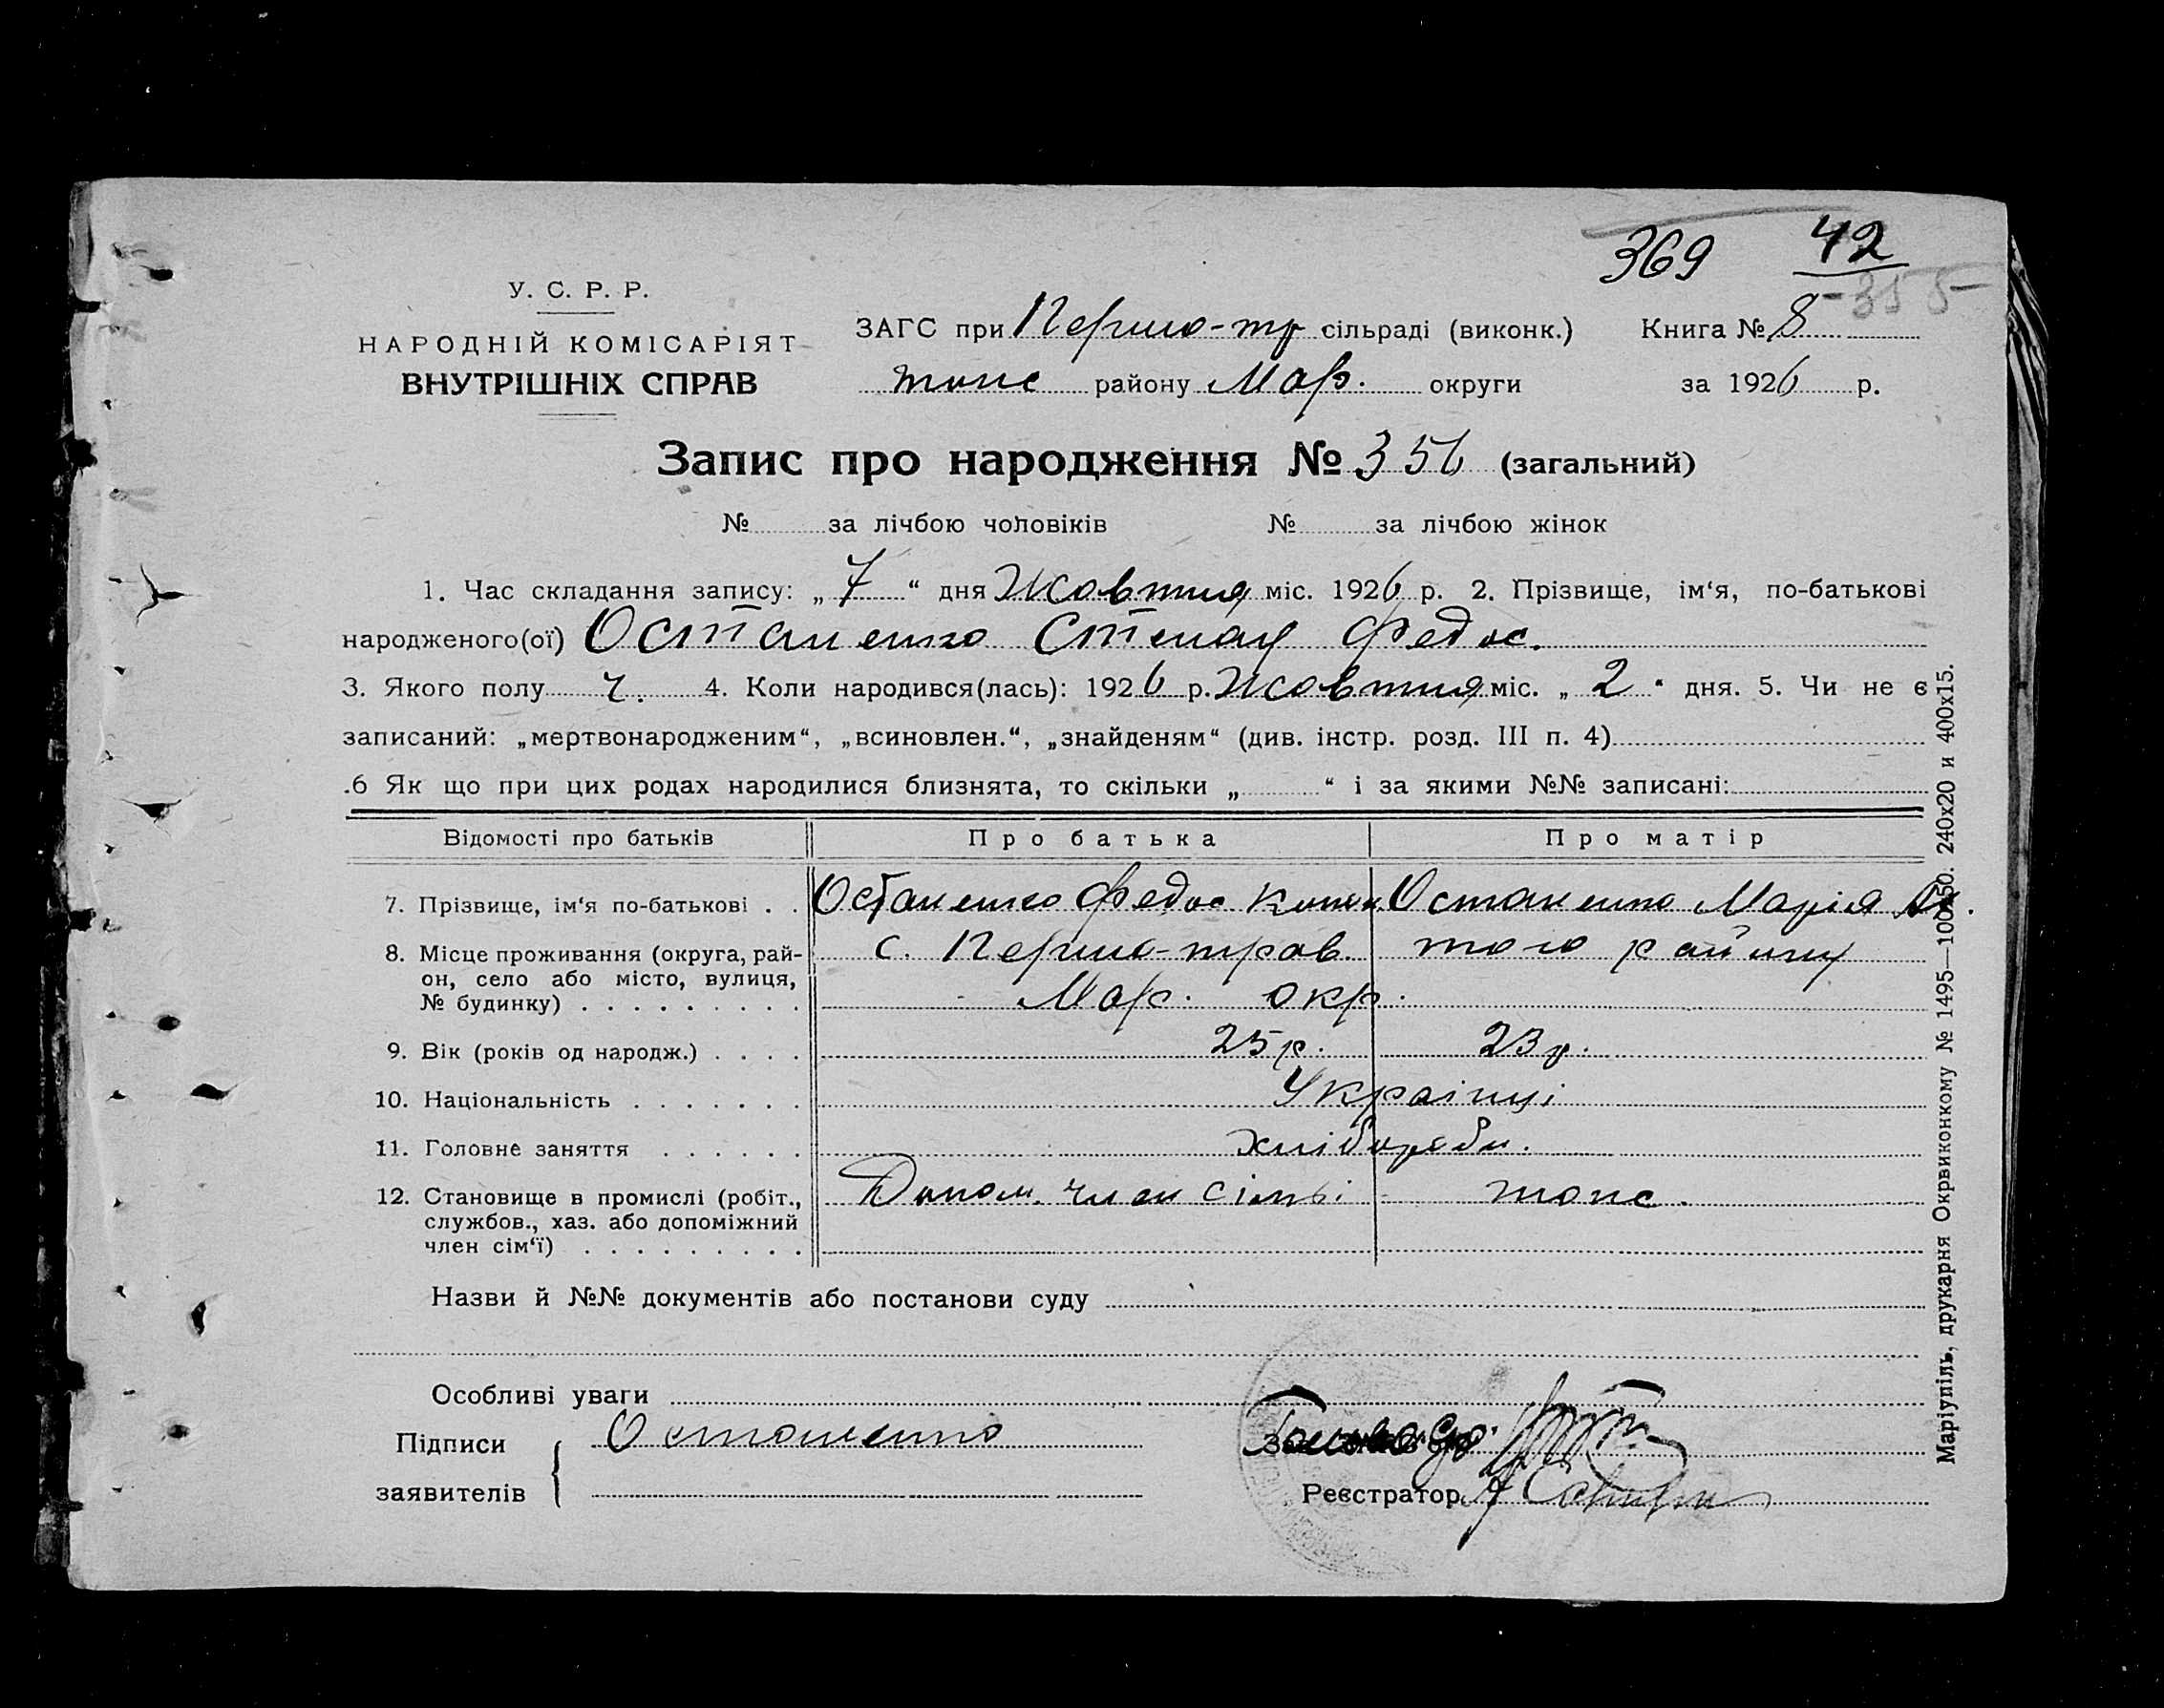 369 42
355
У. С. Р. Р.
НАРОДНІЙ КОМІСАРІЯТ
ВНУТРІШНІХ СПРАВ
ЗАГС при Першо-тр сільраді (виконк.) Книга № 8
тоже району Мар. округи за 1926 р.
Запис про народження № 356 (загальний)
№ за лічбою чоловіків № за лічбою жінок
1. Час складання запису: „ 7 “ дня Жовтня міс. 1926 р. 2. Прізвище, ім‘я, по-батькові
народженого(ої) Остапенко Степан Федос.
3. Якого полу ч. 4. Коли народився(лась): 1926 р. Жовтня міс. „ 2 “ дня. 5. Чи не є
записаний: „мертвонародженим“, „всиновлен.“, „знайденям“ (див. інстр. розд. III п. 4)
.6 Як що при цих родах народилися близнята, то скільки „ “ і за якими №№ записані:
Відомості про батьків Про батька Про матір
7. Прізвище, ім‘я по-батькові . . Остапенко Федос Остапенко Марія
8. Місце проживання (округа, рай- с. Першо-трав. того району
он, село або місто, вулиця,
№ будинку) . . . . . . . . . Мар. окр.
9. Вік (років од народж.) . . . . 25 р. 23 р.
10. Національність . . . . . . . Українці
11. Головне заняття . . . . . . хлібороби.
12. Становище в промислі (робіт., Допом. член сімьі тоже.
службов., хаз. або допоміжний
член сім‘ї) . . . . . . . . . .
Назви й №№ документів або постанови суду
Особливі уваги
Підписи Остапенко
заявителів Реєстратор
Маріупіль, друкарня Окрвиконкому № 1495—100×50. 240х20 и 400х15.